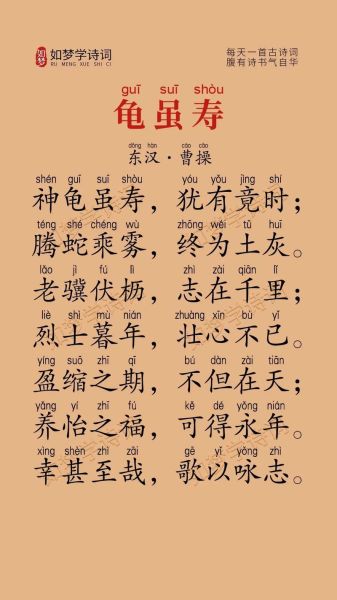 如梦
如梦学诗词
RU MENG XUE SHI CI
每天一首古诗词
腹有诗书气自华
guī suī shòu
龟虽寿
dōng hàn cáo cāo
东汉·曹操
shén guī suī shòu yóu yǒu jìng shí
神龟虽寿，犹有竟时；
téng shé chéng wù zhōng wéi tǔ huī
腾蛇乘雾，终为土灰。
lǎo jì fú lì zhì zài qiān lǐ
老骥伏枥，志在千里；
liè shì mù nián zhuàng xīn bù yǐ
烈士暮年，壮心不已。
yíng suō zhī qī bú dàn zài tiān
盈缩之期，不但在天；
yǎng yí zhī fú kě dé yǒng nián
养怡之福，可得永年。
xìng shèn zhì zāi gē yǐ yǒng zhì
幸甚至哉，歌以咏志。